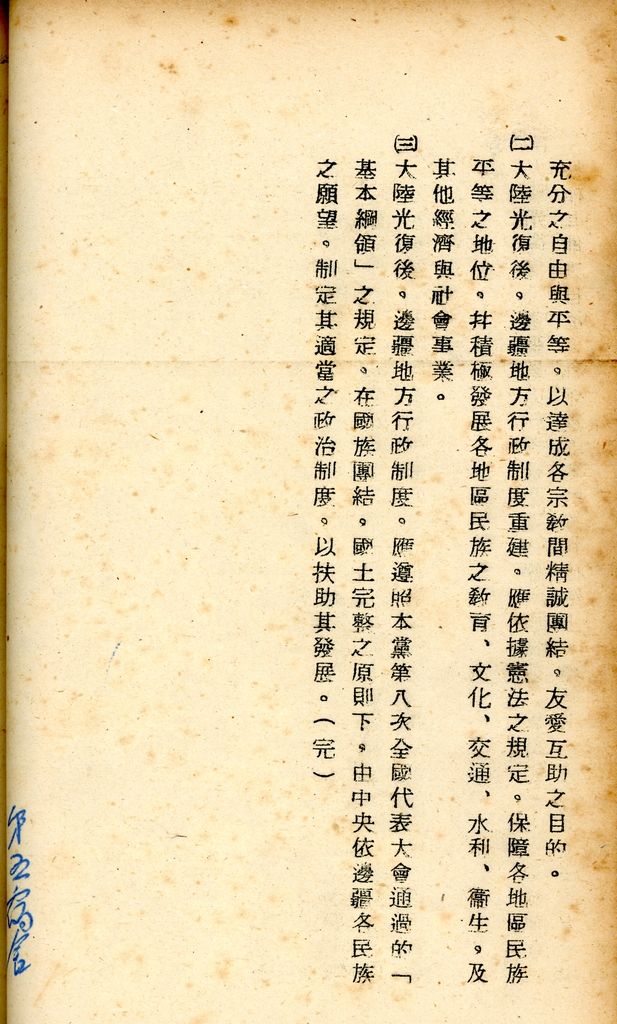 充分之自由與平等。以達成各宗教間精誠團結。友愛互助之目的。
㈡大陸光復後。邊疆地方行政制度重建。應依據憲法之規定。保障各地區民族
平等之地位。并積極發展各地區民族之教育、文化、交通、水利、衞生。及
其他經濟與社會事業。
㈢大陸光復後。邊疆地方行政制度。應遵照本黨第八次全國代表大會通過的「
基本綱領」之規定。在國族團結。國土完整之原則下。由中央依邊疆各民族
之願望。制定其適當之政治制度。以扶助其發展。（完）